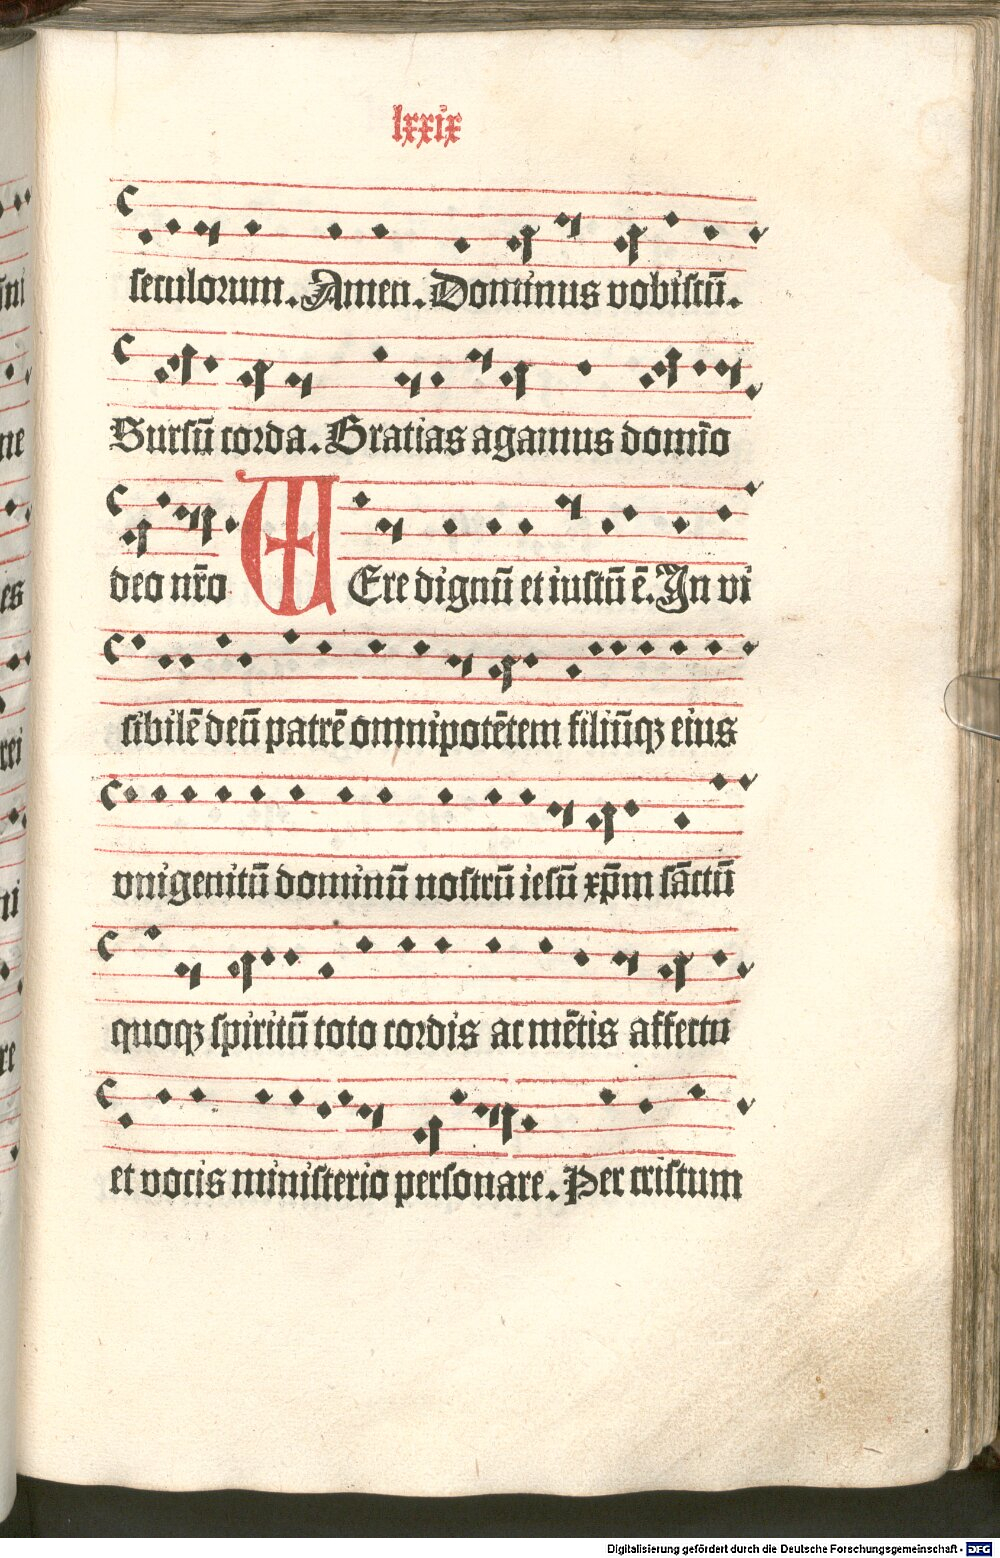 lxxix
seculorum. Amen. Dominus vobiscū.
Sursū corda. Gratias agamus domīo
deo nr̄o VEre dignū et iustū ē. In vi
sibilē deū patrē omnipotētem filiūqꝫ eius
vnigenitū dominū nostrū iesū xp̄m sāctū
quoqꝫ spiritū toto cordis ac mētis affectu
et vocis ministerio personare. Per cristum
Digitalisierung gefördert durch die Deutsche Forschungsgemeinschaft - DFG